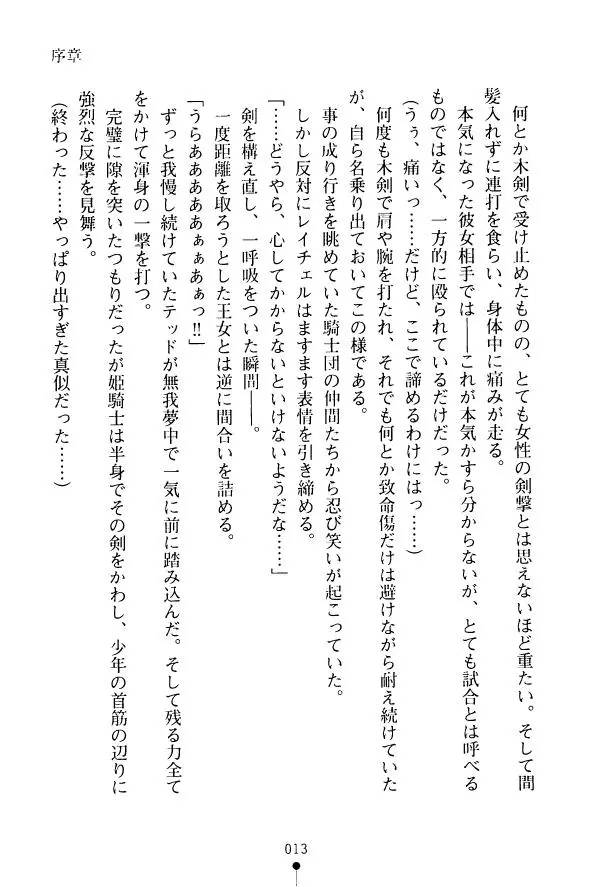 序章
何とか木剣で受け止めたものの、とても女性の剣撃とは思えないほど重たい。そして間
髪入れずに連打を食らい、身体中に痛みが走る。
本気になった彼女相手では――これが本気かすら分からないが、とても試合とは呼べる
ものではなく、一方的に殴られているだけだった。
(うぅ、痛いっ……だけど、ここで諦めるわけにはっ……)
何度も木剣で肩や腕を打たれ、それでも何とか致命傷だけは避けながら耐え続けていた
が、自ら名乗り出ておいてこの様である。
事の成り行きを眺めていた騎士団の仲間たちから忍び笑いが起こっていた。
しかし反対にレイチェルはますます表情を引き締める。
「……どうやら、心してかからないといけないようだな……」
剣を構え直し、一呼吸をついた瞬間――。
一度距離を取ろうとした王女とは逆に間合いを詰める。
「うらあああああぁぁあぁっ!!」
ずっと我慢し続けていたテッドが無我夢中で一気に前に踏み込んだ。そして残る力全て
をかけて渾身の一撃を打つ。
完璧に隙を突いたつもりだったが姫騎士は半身でその剣をかわし、少年の首筋の辺りに
強烈な反撃を見舞う。
(終わった……やっぱり出すぎた真似だった……)
013